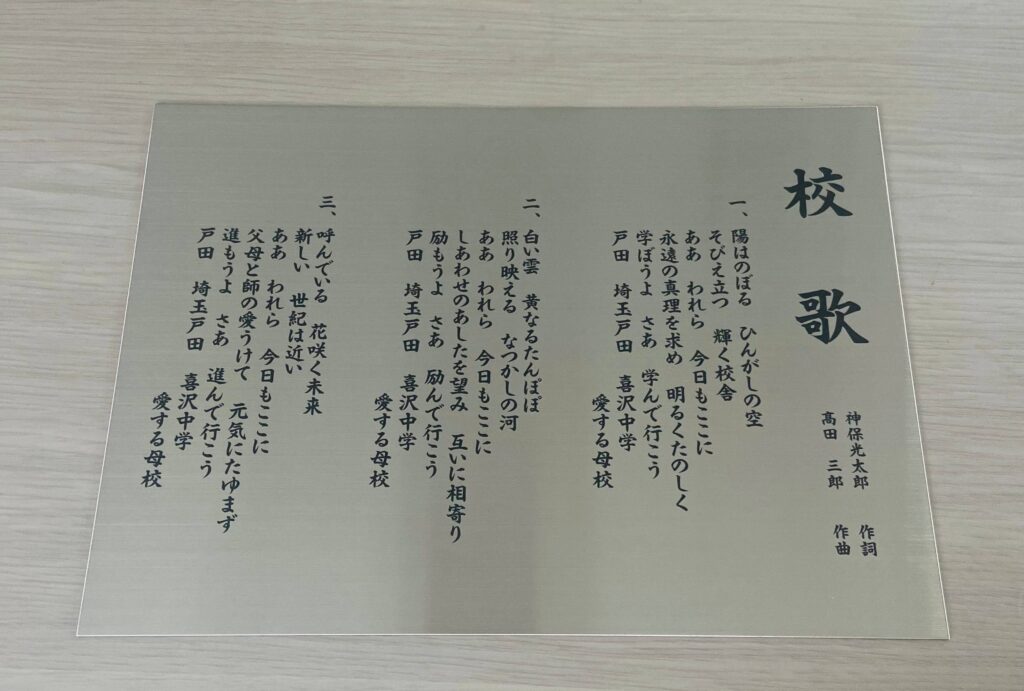 校歌
神保光太郎 作詞
髙田 三郎 作曲
一、陽はのぼる ひんがしの空
そびえ立つ 輝く校舎
ああ われら 今日もここに
永遠の真理を求め 明るくたのしく
学ぼうよ さあ 学んで行こう
戸田 埼玉戸田 喜沢中学
愛する母校
二、白い雲 黄なるたんぽぽ
照り映える なつかしの河
ああ われら 今日もここに
しあわせのあしたを望み 互いに相寄り
励もうよ さあ 励んで行こう
戸田 埼玉戸田 喜沢中学
愛する母校
三、呼んでいる 花咲く未来
新しい 世紀は近い
ああ われら 今日もここに
父母と師の愛うけて 元気にたゆまず
進もうよ さあ 進んで行こう
戸田 埼玉戸田 喜沢中学
愛する母校